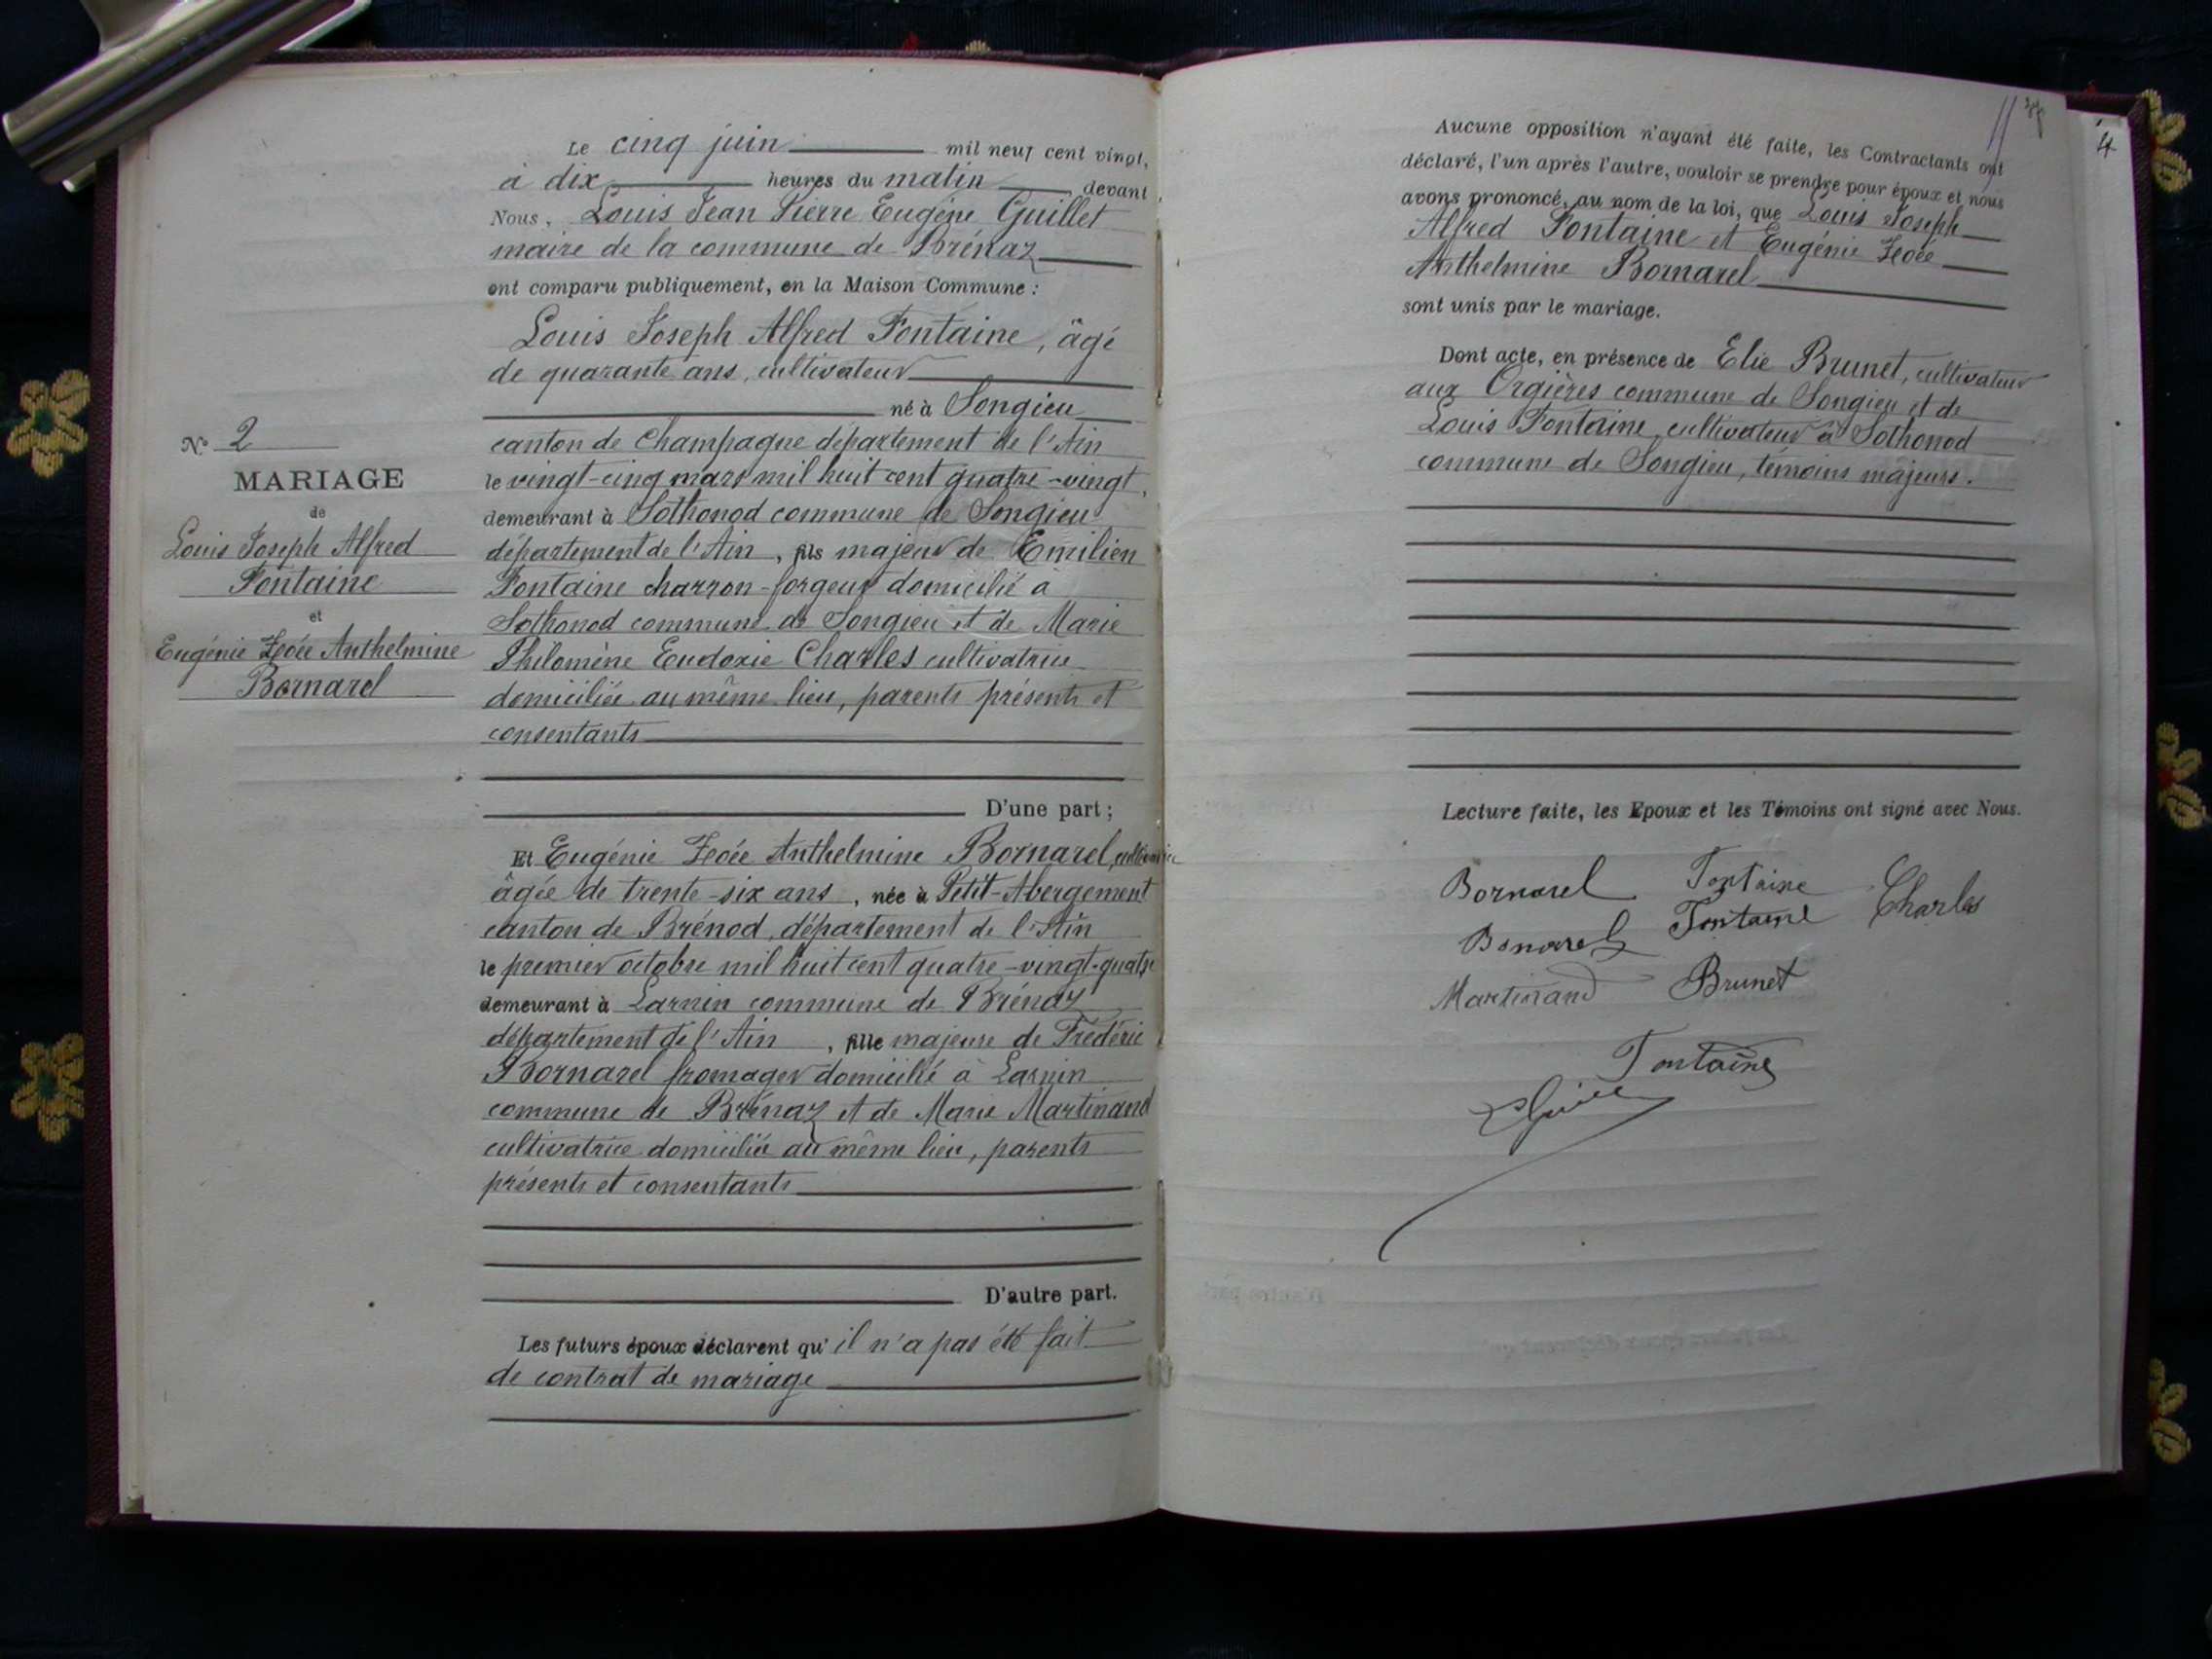 Le cinq juin mil neuf cent vingt,
à dix heures du matin, devant
Nous, Louis Jean Pierre Eugène Guillet
maire de la commune de Brénaz
ont comparu publiquement, en la Maison Commune :
Louis Joseph Alfred Fontaine, âgé
de quarante ans, cultivateur
né à Songieu
canton de Champagne département de l'Ain
le vingt-cinq mars mil huit cent quatre-vingt,
demeurant à Sothonod commune de Songieu
département de l'Ain, fils majeur de Emilien
Fontaine charron-forgeur domicilié à
Sothonod commune de Songieu et de Marie
Philomène Eudoxie Charles cultivatrice
domiciliée au même lieu, parents présents et
consentants
D'une part ;
Et Eugénie Zoée Anthelmine Bornarel, cultivatrice
âgée de trente-six ans, née à Petit-Abergement
canton de Brénod, département de l'Ain
le premier octobre mil huit cent quatre-vingt-quatre
demeurant à Larnin commune de Brénaz
département de l'Ain, fille majeure de Frédéric
Bornarel fromager domicilié à Larnin
commune de Brénaz et de Marie Martinand
cultivatrice domiciliée au même lieu, parents
présents et consentants
D'autre part.
Les futurs époux déclarent qu'il n'a pas été fait
de contrat de mariage
N° 2
MARIAGE
de
Louis Joseph Alfred
Fontaine
et
Eugénie Zoée Anthelmine
Bornarel
4
Aucune opposition n'ayant été faite, les Contractants ont
déclaré, l'un après l'autre, vouloir se prendre pour époux et nous
avons prononcé, au nom de la loi, que Louis Joseph
Alfred Fontaine et Eugénie Zoée
Anthelmine Bornarel
sont unis par le mariage.
Dont acte, en présence de Elie Brunet, cultivateur
aux Orgières commune de Songieu et de
Louis Fontaine cultivateur à Sothonod
commune de Songieu, témoins majeurs.
Lecture faite, les Epoux et les Témoins ont signé avec Nous.
Bornarel Fontaine Charles
Bornarel Fontaine
Martinand Brunet
Fontaine